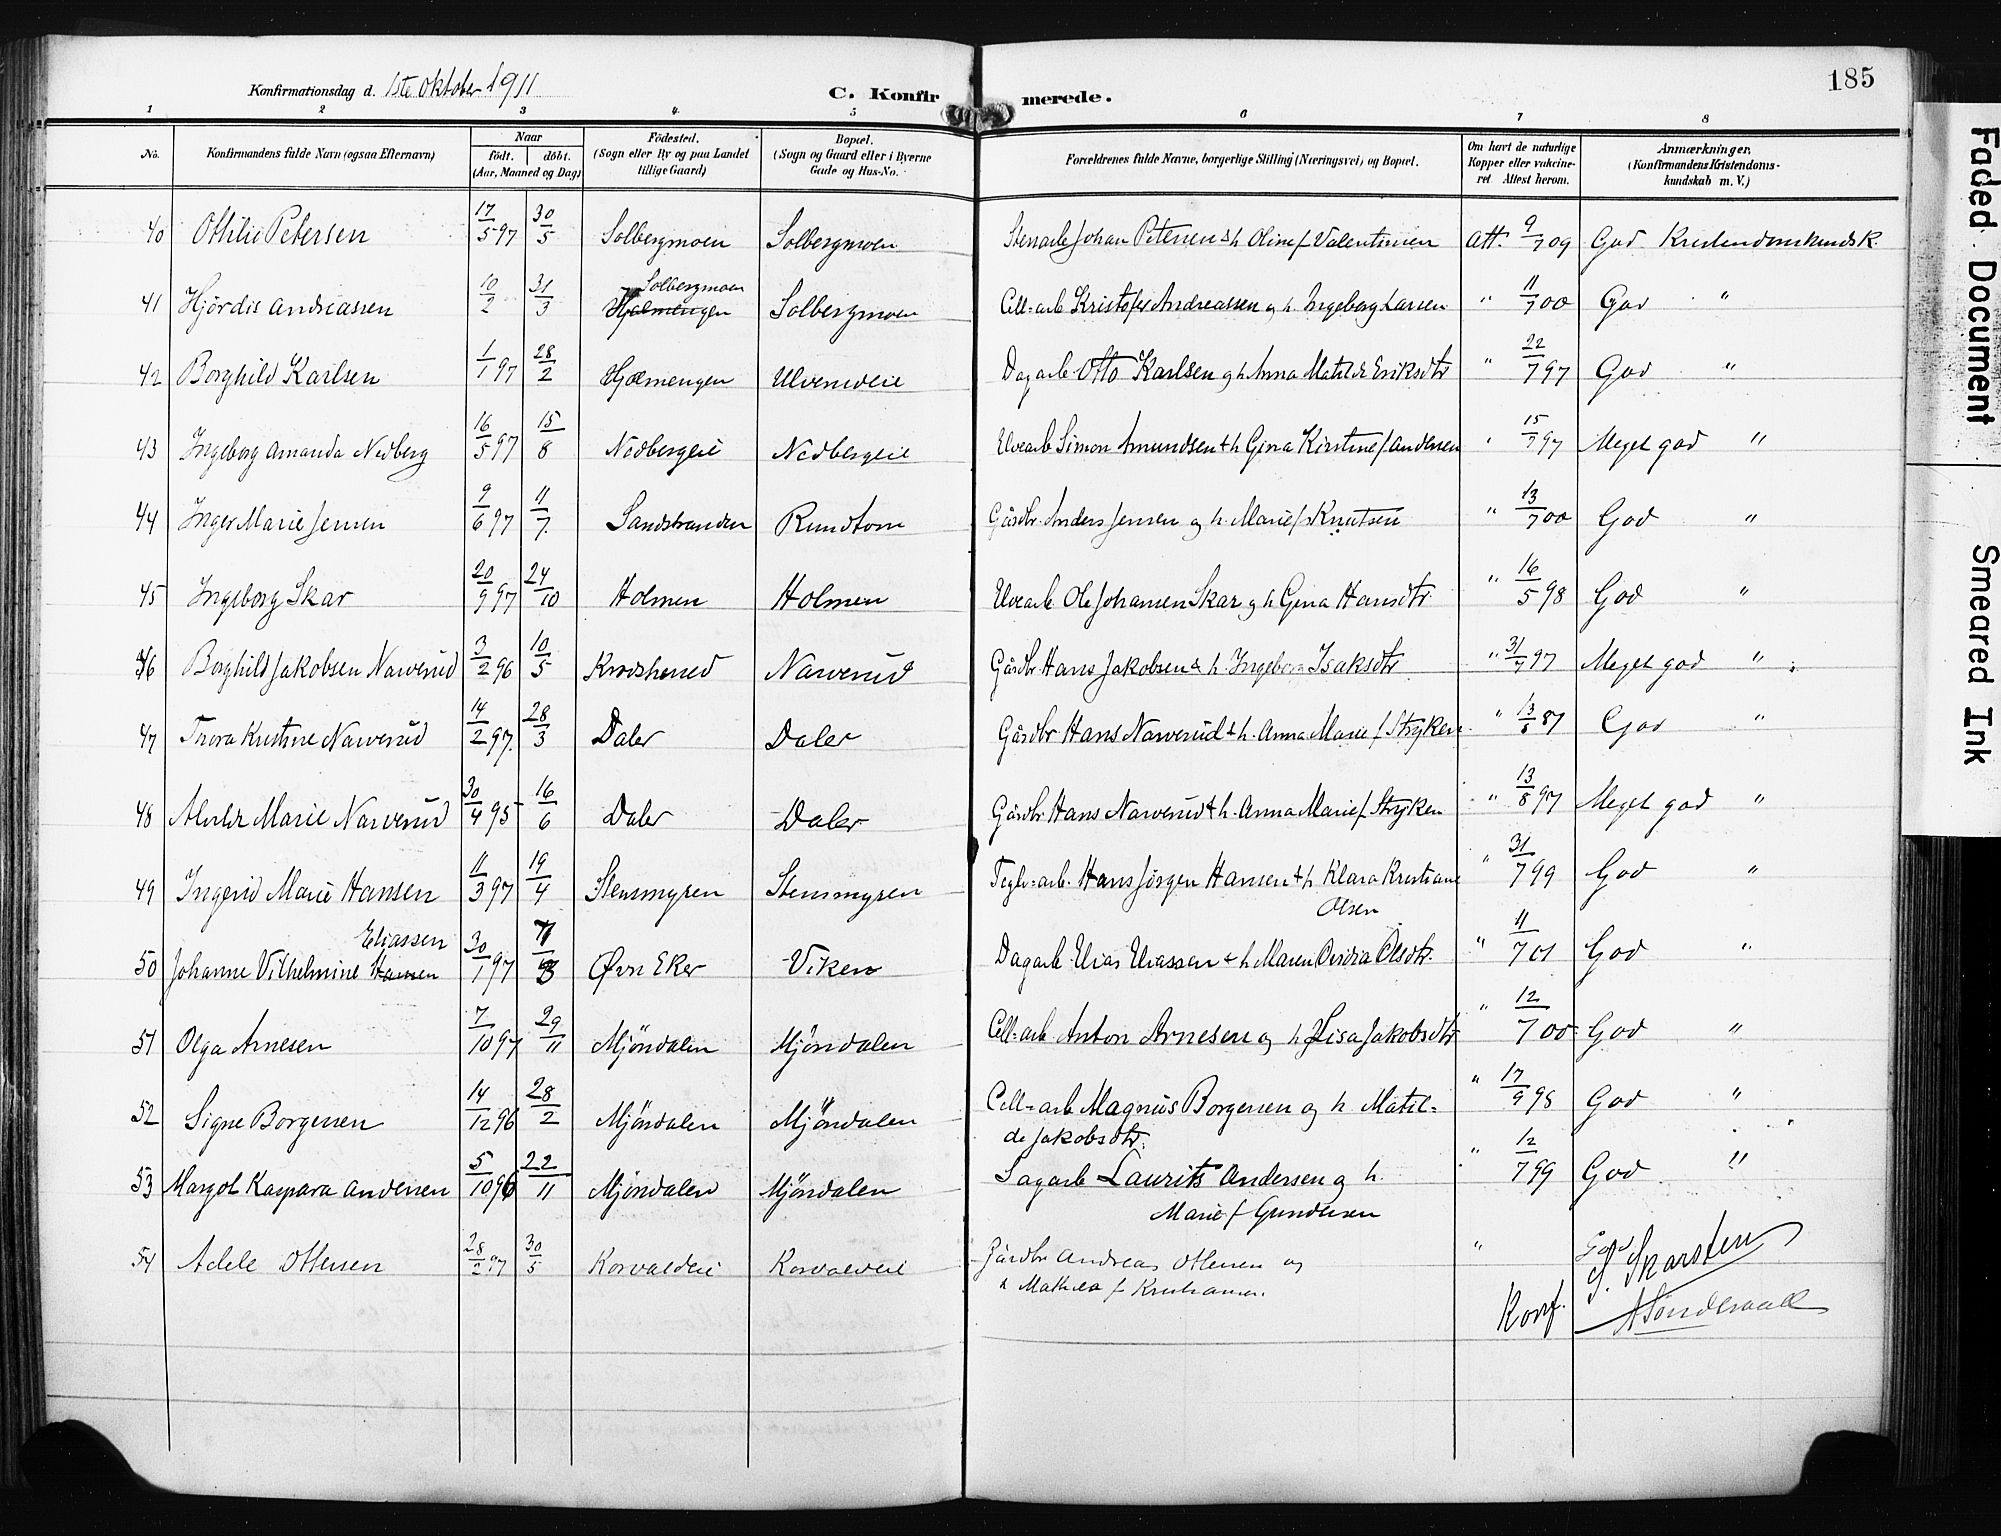 185
Konfirmationsdag d. 1ste Oktober 1911 C. Konfirmerede.
1 2 3 4 5 6 7 8
No. Konfirmandens fulde Navn (ogsaa Efternavn) Naar født. døbt. (Aar, Maaned og Dag) Fødested. (Sogn eller By og paa Landet tillige Gaard) Bopæl. (Sogn og Gaard eller i Byerne Gade og Hus-No. Forældrenes fulde Navne, borgerlige Stilling (Næringsvei) og Bopæl. Om havt de naturlige Kopper eller vakcineret Attest herom. Anmærkninger. (Konfirmandens Kristendomskundskab m. V.)
40 Othilie Petersen 17/5 97 30/5 Solbergmoen Solbergmoen Stenarb Johan Petersen & h. Oline f. Valentinsen Att. 9/7 09 God Kristendomskundsk.
41 Hjørdis Andreassen 10/2 31/3 Solbergmoen Hjelmengen Solbergmoen Cell=arb Kristofer Andreassen og h. Ingeborg Larsen " 11/7 00 God "
42 Borghild Karlsen 1/1 97 28/2 Hjælmengen Ulvenveie Dagarb Otto Karlsen og h Anna Matilde Eriksdtr " 22/7 97 God "
43 Ingeborg Amanda Nedberg 16/5 97 15/8 Nedbergeie Nedbergeie Elvearb Simon Amundsen & h Gina Kirstine f. Andersen " 15/7 97 Meget god "
44 Inger Marie Jensen 9/6 97 11/7 Sandstranden Rundtom Gårdbr. Anders Jensen og h. Marie f. Knutsen " 13/7 00 God "
45 Ingeborg Skar 20/9 97 24/10 Holmen Holmen Elvearb Ole Johansen Skar og h Gina Hansdtr " 16/5 98 God "
46 Borghild Jakobsen Narverud 3/2 96 10/5 Krodshered Narverud Gårdbr Hans Jakobsen & h. Ingeborg Isaksdtr " 31/7 97 Meget god "
47 Thora Kristine Narverud 14/2 97 28/3 Daler Daler Gårdbr Hans Narverud & h. Anna Marie f. Stryken " 13/8 87 God "
48 Marie Narverud 30/4 95 16/6 Daler Daler Gårdbr. Hans Narverud & h. Anna Marie f. Stryken " 13/8 97 Meget god "
49 Ingerid Marie Hansen 11/3 97 19/4 Stensmyren Stensmyren Teglv=arb. Hans Jørgen Hansen & h Klara Kristiane " 31/7 99 God "
Olsen
Eliassen
50 Johanne Vilhelmine Hansen 30/1 97 Øvn Eker Viken Dagarb Elias Eliassen & h Maren Olsdtr. " 11/7 01 God "
51 Olga Arnesen 7/10 97 29/11 Mjöndalen Mjöndalen Cell=arb. Anton Arnesen og h Lisa Jakobsdtr " 12/7 00 God "
52 Signe Borgersen 14/12 96 28/2 Mjöndalen Mjöndalen Cell=arb Magnus Borgersen og h Matil= " 17/9 98 God "
de Jakobsdtr.
53 Margot Kaspara Andersen 5/10 96 22/11 Mjöndalen Mjöndalen Sagarb Laurits Andersen og h. " 12/7 99 God "
Marie f Gundersen
54 Adele Ottersen 28/2 97 30/5 Korvaldeie Korvaldeie Gårdbr Andreas Ottersen og " God
h Mathea f Kristiansen.
S. Skarsten
Konf. A Sønderaal
Faded Document
Smeared Ink